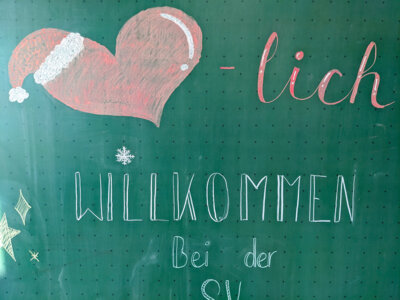 -lich
WILLKOMMEN
Bei der
SV